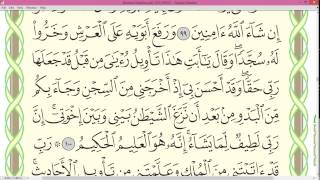 إِن شَآءَ ٱللَّهُ ءَامِنِينَ ٩٩ وَرَفَعَ أَبَوَيْهِ عَلَى ٱلْعَرْشِ وَخَرُّوا۟
لَهُۥ سُجَّدًۭا ۖ وَقَالَ يَٰٓأَبَتِ هَٰذَا تَأْوِيلُ رُءْيَٰىَ مِن قَبْلُ قَدْ جَعَلَهَا
رَبِّى حَقًّۭا ۖ وَقَدْ أَحْسَنَ بِىٓ إِذْ أَخْرَجَنِى مِنَ ٱلسِّجْنِ وَجَآءَ بِكُم
مِّنَ ٱلْبَدْوِ مِنۢ بَعْدِ أَن نَّزَغَ ٱلشَّيْطَٰنُ بَيْنِى وَبَيْنَ إِخْوَتِىٓ ۚ إِنَّ
رَبِّى لَطِيفٌۭ لِّمَا يَشَآءُ ۚ إِنَّهُۥ هُوَ ٱلْعَلِيمُ ٱلْحَكِيمُ ١٠٠ ۞ رَبِّ
قَدْ ءَاتَيْتَنِى مِنَ ٱلْمُلْكِ وَعَلَّمْتَنِى مِن تَأْوِيلِ ٱلْأَحَادِيثِ ۚ